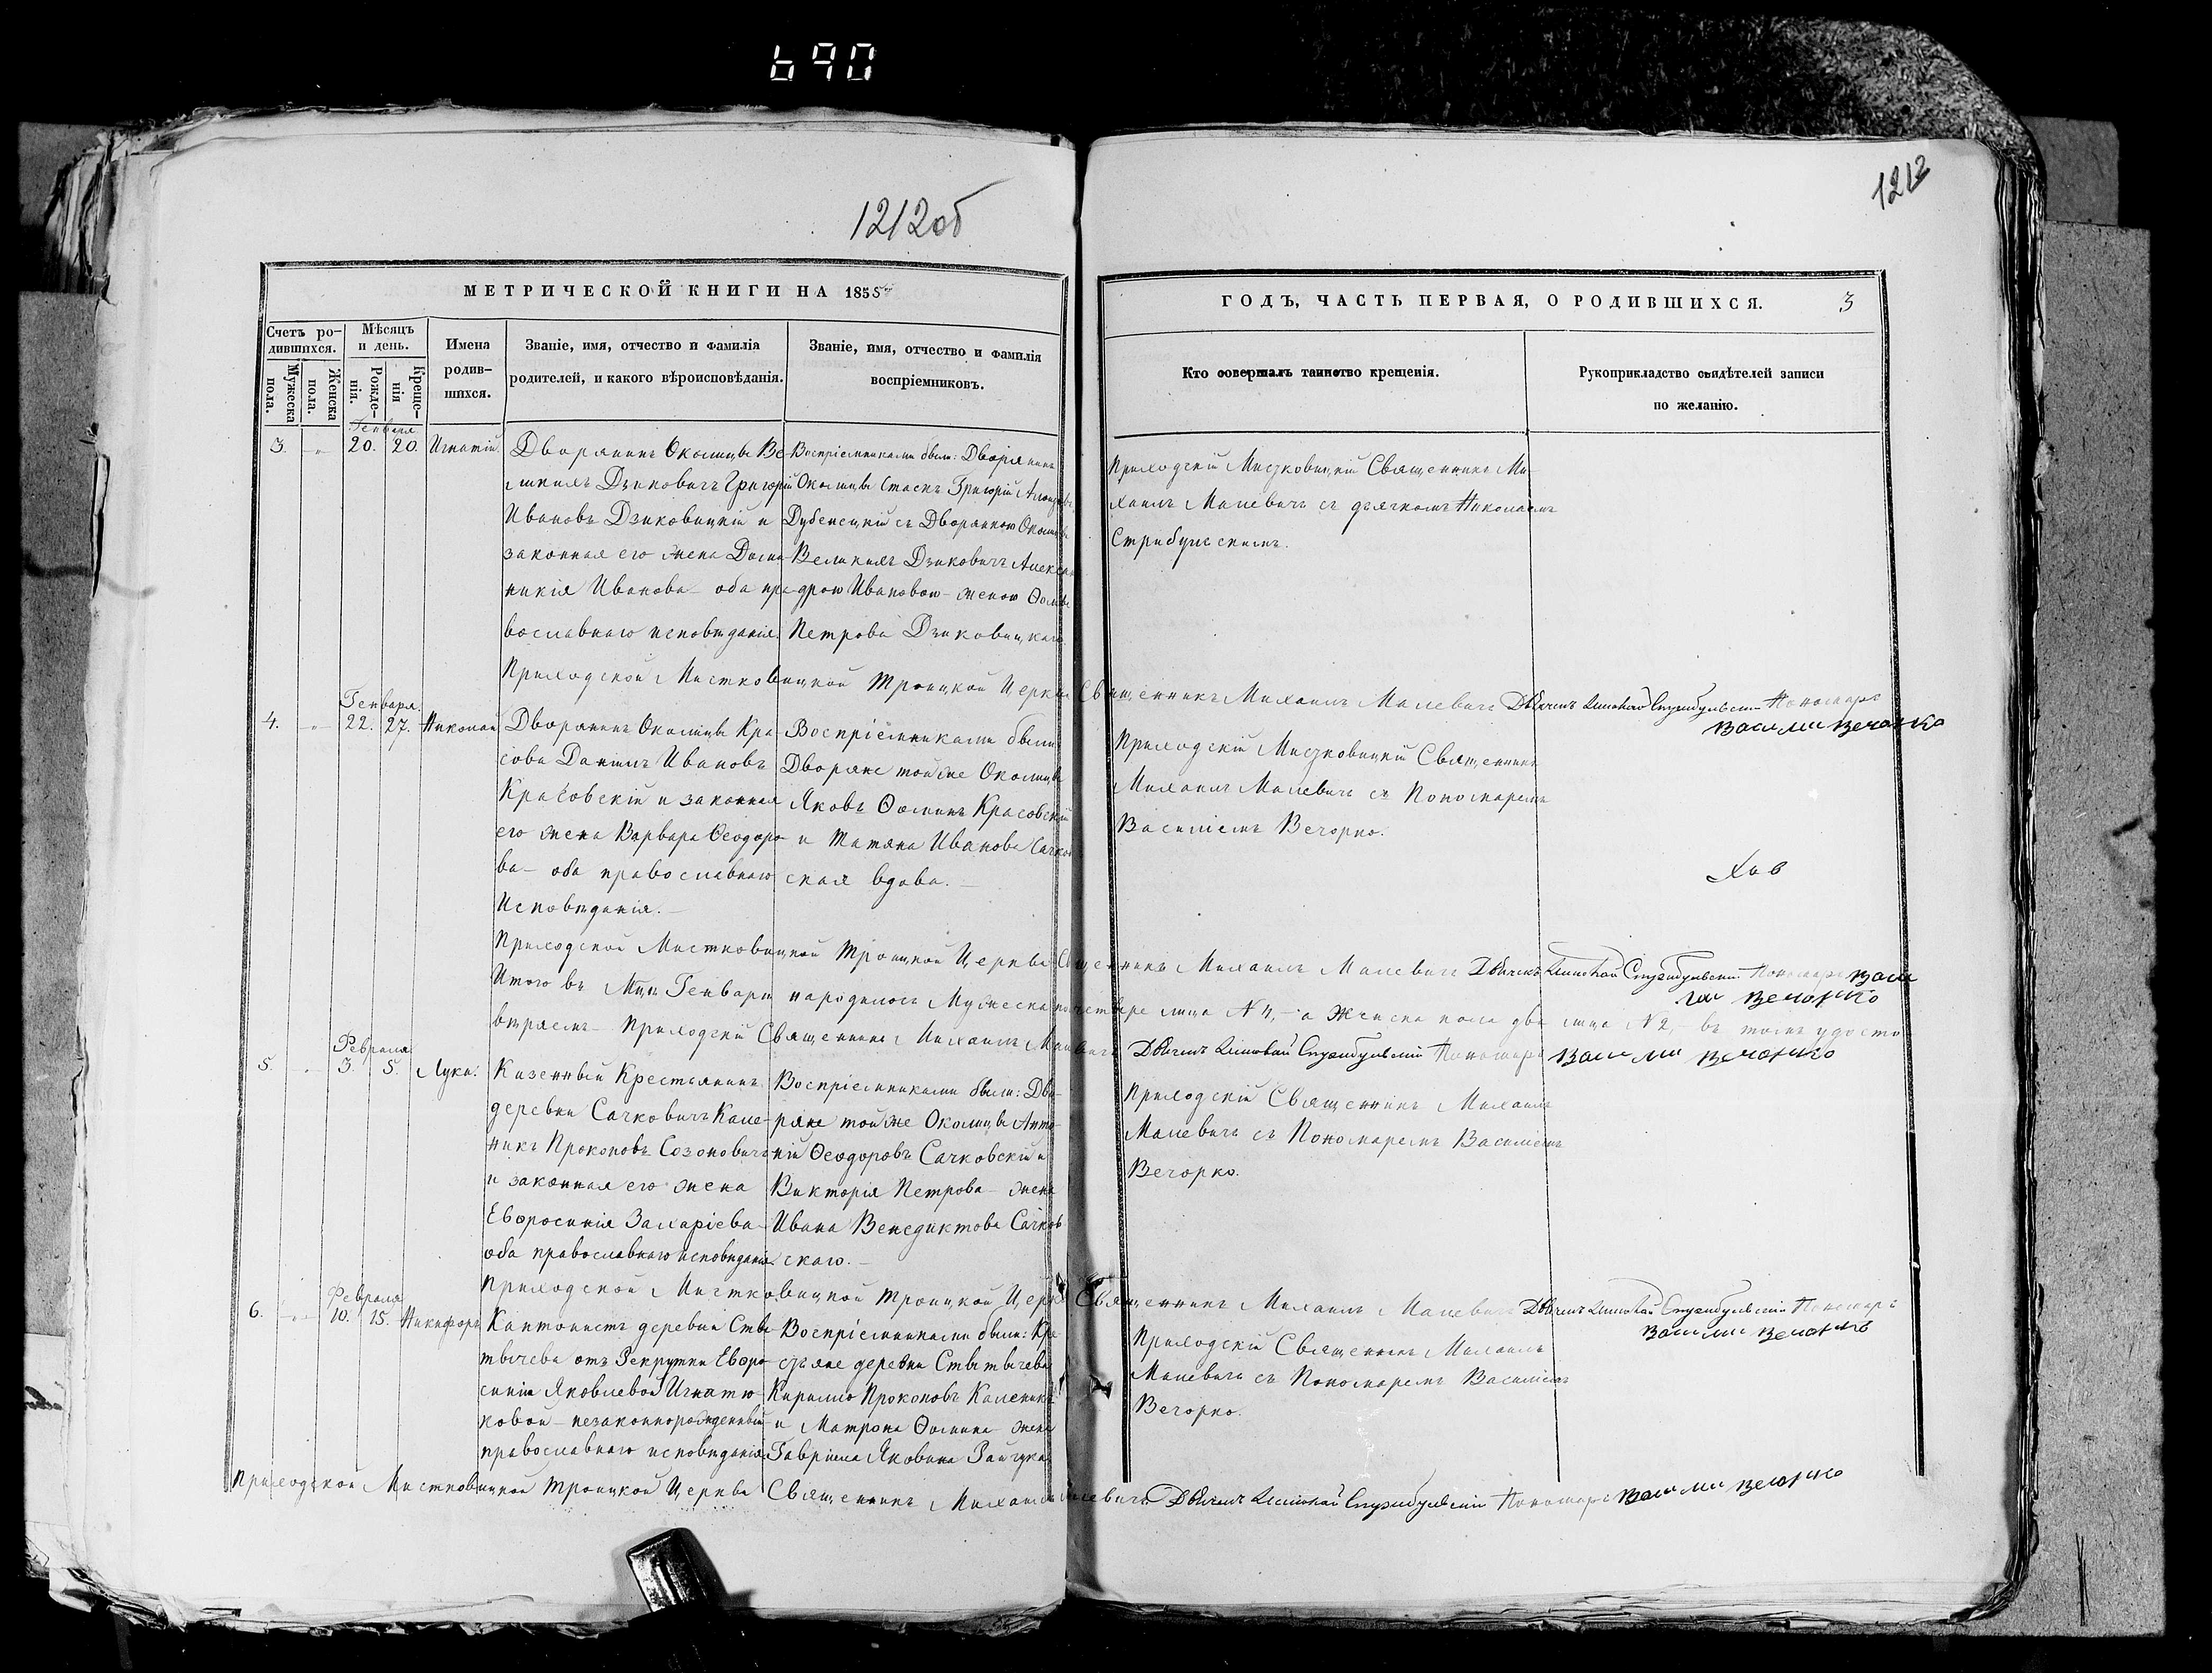 690
1212об
1212
МЕТРИЧЕСКОЙ КНИГИ НА 1855
ГОДЪ, ЧАСТЬ ПЕРВАЯ, О РОДИВШИХСЯ. 3
Счетъ ро-
дившихся.
Мужеска
пола.
Женска
пола.
Мѣсяцъ
и день.
Рожде-
нія.
Креще-
нія
Имена
родив-
шихся.
Званіе, имя, отчество и фамилія
родителей, и какого вѣроисповѣданія.
Званіе, имя, отчество и фамилія
воспріемниковъ.
Кто совершалъ таинство крещенія.
Рукоприкладство свидѣтелей записи
по желанію.
Генваря
3. 20. 20. Игнатій.
Дворянинъ Околицы Ве-
ликихъ Дзиковичъ Григорій
Ивановъ Дзиковицкій и
законная его жена Доми-
никія Иванова - оба пра-
вославнаго исповѣданія.
Воспріемниками были: Дворянинъ
Околицы Стахъ Григорій
Дубенецкій съ Дворянкою Околицы
Великихъ Дзиковичъ Алекса-
дрою Ивановою - женою Ѳомы
Петрова Дзиковицкаго
Приходскій Мистковицкій Священникъ Ми-
хаилъ Малевичъ съ дьячкомъ Николаемъ
Стрибульскимъ.
Приходской Мистковицкой Троицкой Церкви Священникъ Михаилъ Малевичъ Дьячекъ Николай Стрибульскій Пономарь
Василій Вечорко
Генваря.
4. 22. 27. Николай
Дворянинъ Околицы Кра-
сова Даніилъ Ивановъ
Красовскій и законная
его жена Варвара Ѳеодоро-
ва - оба православнаго
Исповѣданія.
Воспріемниками были
Дворяне тойже Околицы
Яковъ Ѳоминъ Красовскій
и Татяна Иванова Сачков-
ская вдова.
Приходскій Мистковицкій Священникъ
Михаилъ Малевичъ съ Пономаремъ
Василіемъ Вечорко.
Приходской Мистковицкой Троицкой Церкви Священникъ Михаилъ Малевичъ Дьячекъ Николай Стрибульскій Пономарь Васи
лій Вечорко
Итого въ Мцѣ Генварѣ народилось Мужеска пола четыре лица N 4, - а Женска пола два лица N 2, - въ томъ удосто
вѣряемъ - Приходскій Священникъ Михаилъ Малевичъ Дьячекъ Николай Стрибульскій Пономарь Василій Вечорко
Февраля
5. 3. 5. Лука.
Казенный Крестьянинъ
деревни Сачковичъ Кале-
никъ Прокоповъ Созоновичъ
и законная его жена
Евфросинія Захаріева
оба православнаго исповѣданія.
Воспріемниками были: Дво-
ряне тойже Околицы Анто-
ній Ѳеодоровъ Сачковскій и
Викторія Петрова - жена
Ивана Венедиктова Сачков
скаго.
Приходскій Священникъ Михаилъ
Малевичъ съ Пономаремъ Василіемъ
Вечорко.
Приходской Мистковицкой Троицкой Церкви Священникъ Михаилъ Малевичъ Дьячекъ Николай Стрибульскій Пономарь
Василій Вечорко
Февраля
6. 10. 15. Никифоръ
Кантонистъ деревни Сты-
тычева отъ Рекрутки Евфро-
синіи Яковлевой Игнатю-
ковой - незаконнорожденный
православнаго исповѣданія
Воспріемниками были: Кре-
стьяне деревни Стытычева
Кирилло Прокоповъ Каленикъ
и Матрона Ѳомина жена
Гавріила Яковина Зайчука
Приходскій Священникъ Михаилъ
Малевичъ съ Пономаремъ Василіемъ
Вечорко.
Приходской Мистковицкой Троицкой Церкви Священникъ Михаилъ Малевичъ Дьячекъ Николай Стрибульскій Пономарь Василій Вечорко